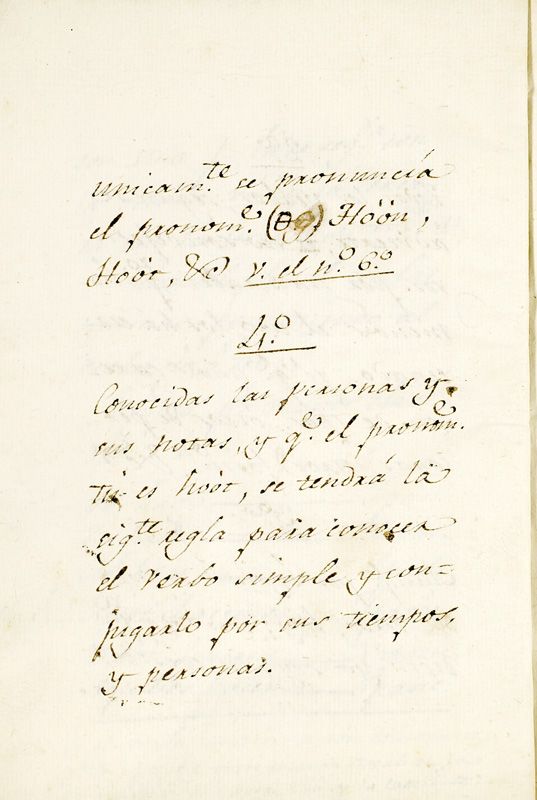 unicam.te se pronuncía
el pronom.e Höön,
Hoöt, & v. el n.o 6.o
4.o
Conocidas las personas y
sus notas, y q.e el pronom.e
Tú es hoöt, se tendrá la
sig.te regla para conocer
el verbo simple y con-
jugarlo por sus tiempos,
y personas.